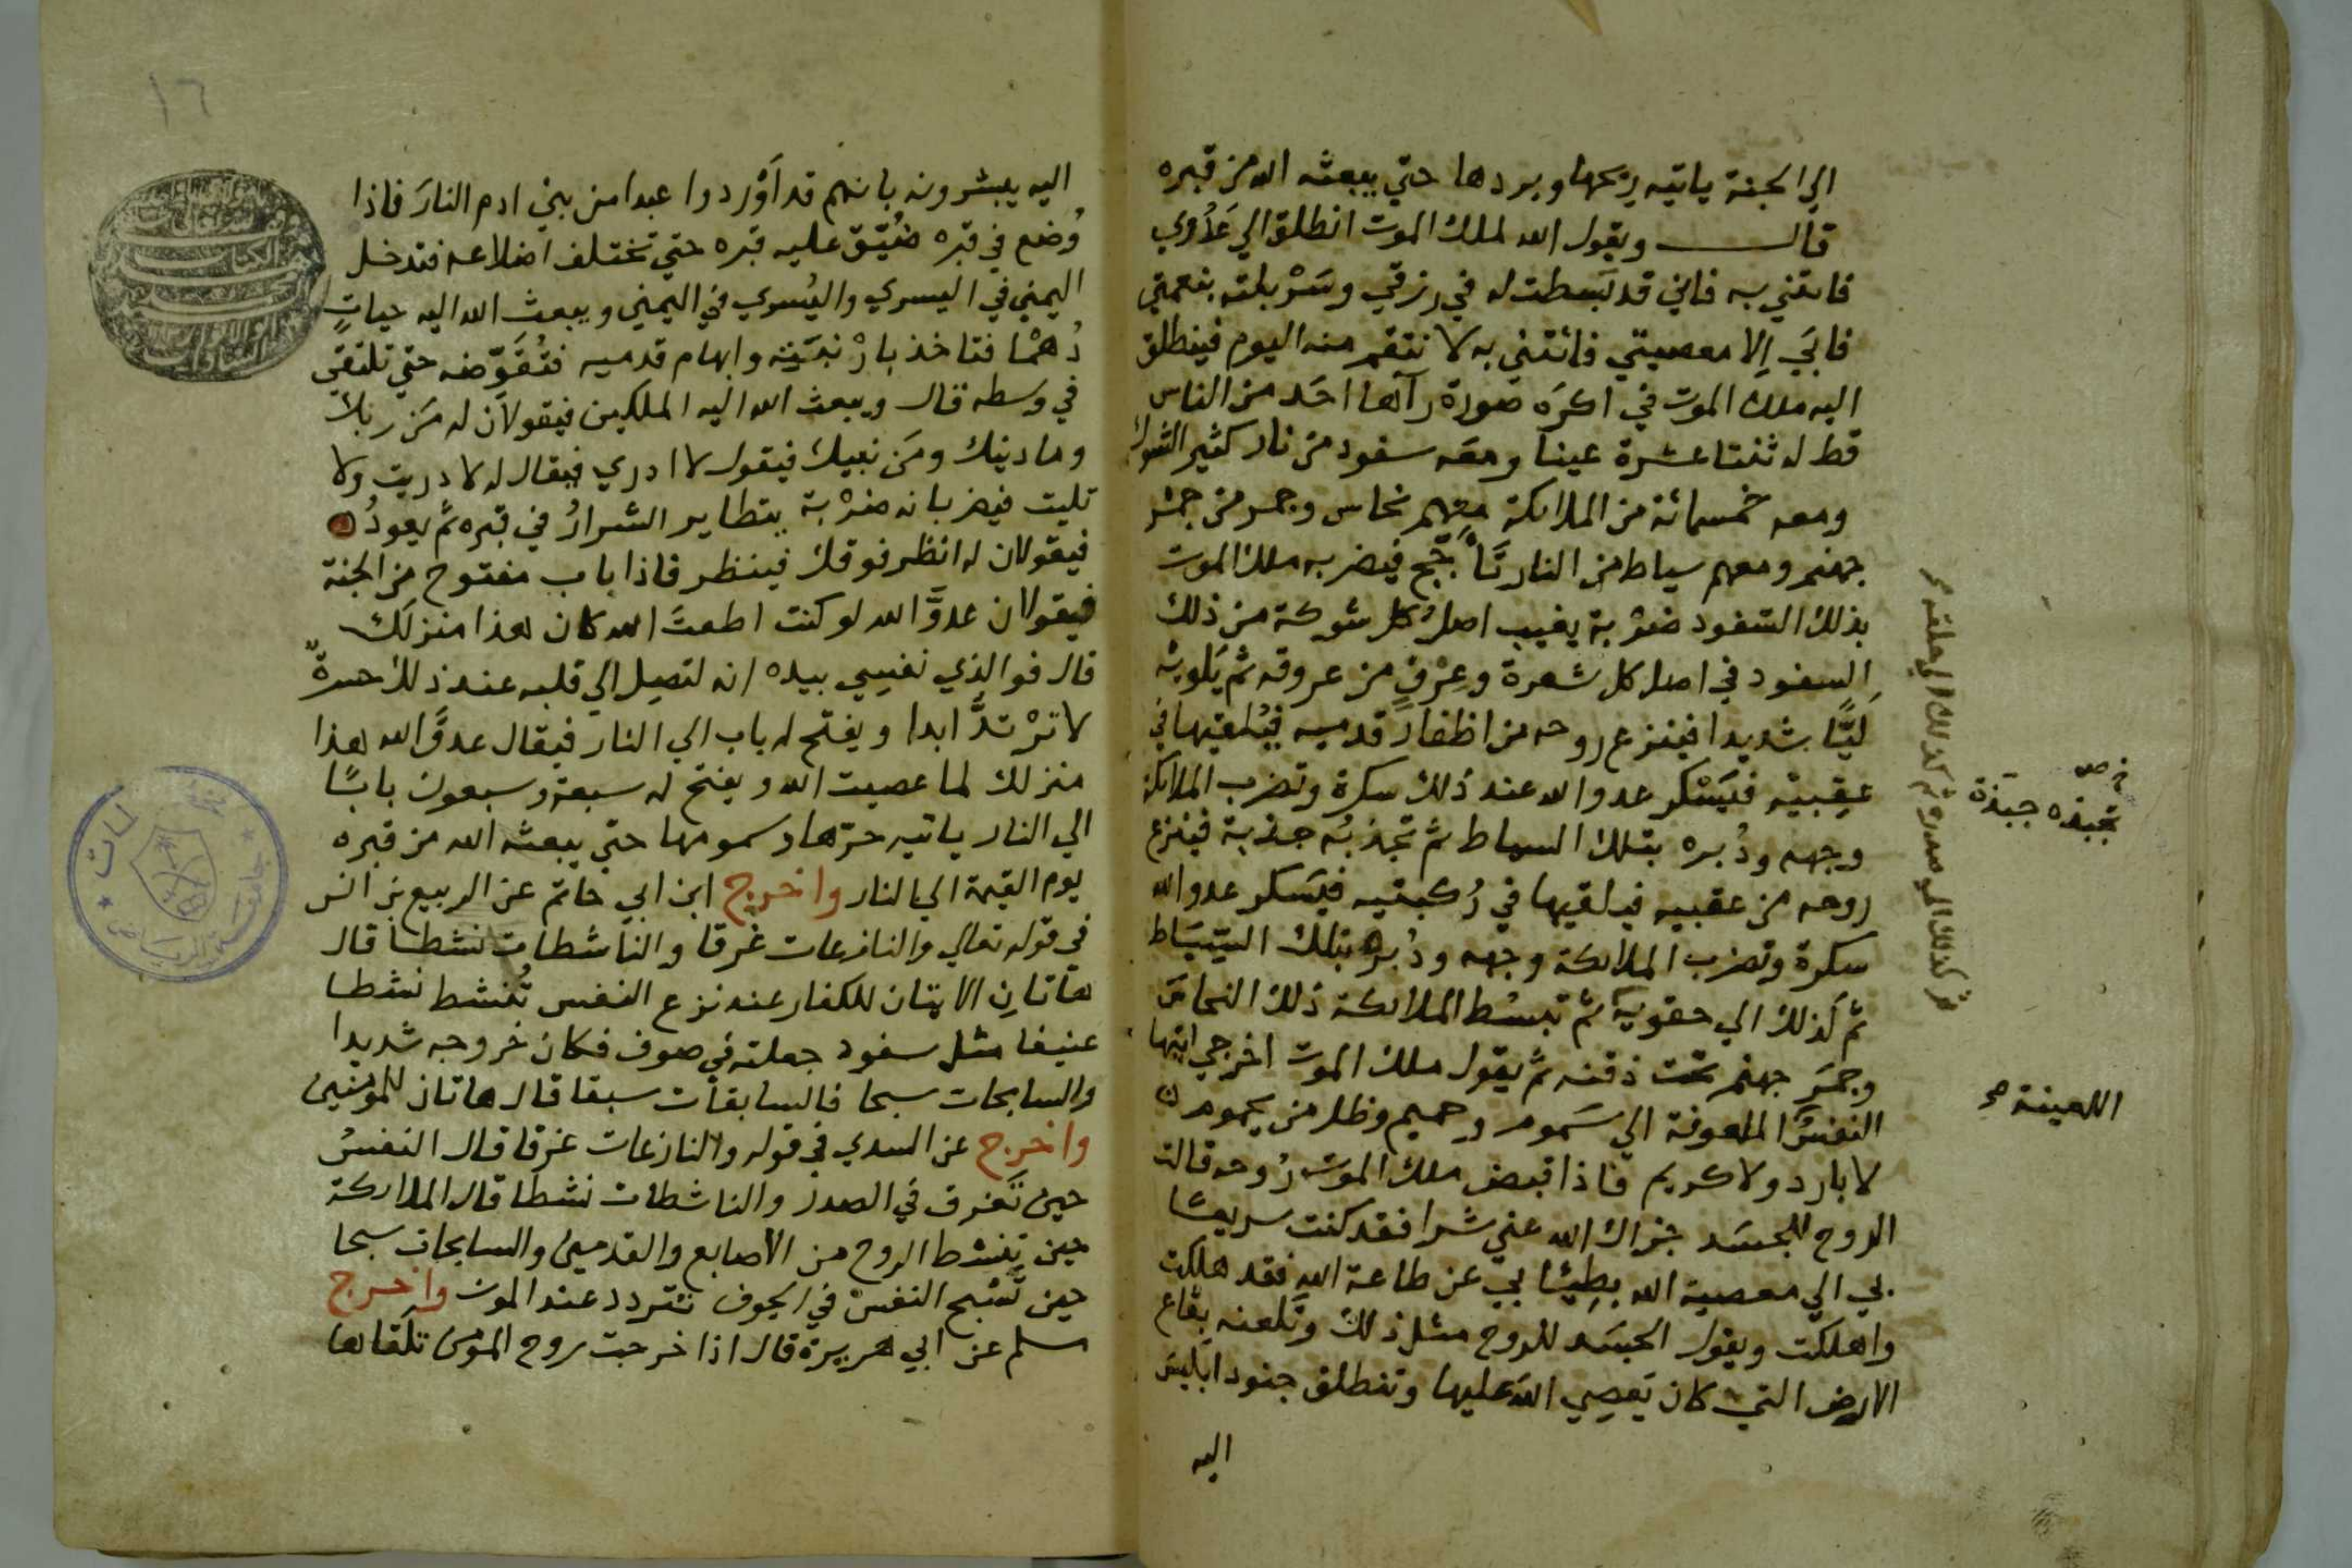 الي الجنة ياتيه ريحها وبردها حتي يبعثه الله من قبره
قال ويقول الله لملك الموت انطلق الي عَدُوي
فاتني به فاني قد بَسطت له في رزقي وسَرْبلته بنعمتي
فابَي اِلا معصيتي فائتني به لا نتقم منه اليوم فينطلق
اليه ملك الموت في اكرَه صورة رآها احَد من الناس
قط له ثنتا عشرة عينا ومعَه سفود من نار كثير الشوك
ومعه خمسمائة من الملائكة معهم نحاس وجمر من جمر
جهنم ومعهم سياط من النار تَأجَّج فيضربه ملك الموت
بذلك السّفود ضرْبة يغيب اصلُ كل شوكة من ذلك
السفود في اصل كل شعرة وعِرْقٍ من عروقه ثم يَلويْه
لَيًّا شديدا فينزع روحه من اظفار قدميه فيُلقيها في
عقِبيْه فيَسْكر عدو الله عند ذلك سكرة وتضرب الملائكة
وجهه ودُبره بتلك السياط ثم تجذبُه جذبة فينزع
روحه من عقبيه فيلقيها في رُكبتيه فيَسكر عدو الله
سكرة وتضرب الملائكة وجهه ودُبره بتلك السّيَاط
ثم كَذلك الي حقويه ثم تبسُط الملائكة ذلك النحاسَ
وجمَر جهنم تحت ذقنه ثم يقول ملك الموت اخرجي ايتها
النفسُ الملعونة الي سَموم وحميم وظل من يحموم
لا بارد ولا كريم فاذا قبض ملك الموت رُوحه قالت
الروح للجسَد جزاك الله عني شرا فقد كنت سريعًا
بي الي معصية الله بطيئا بي عن طاعة الله فقد هلكت
واهلكت ويقول الجسَد للروح مثل ذلك وتَلعنه بقاع
الارض التي كان يَعصِي اللهَ عليها وتنطلق جنود ابليسَ
اليه
ثم كذلك الي صدره ثم كذلك الي حلقه
تجبذه جبذة
اللعينة
١٦
اليه يبشرونه بانهم قد اَوْردوا عبدا من بني ادم النارَ فاذا
وُضع في قبره ضُيّق عليه قبره حتي تختلف اضلاعه فتدخل
اليمني في اليسري واليُسري في اليمني ويبعث الله اليه حياتٍ
دُهْمًا فتاخذ بارْنَبته وابهام قدميه فتُقَوِّضه حتي تلتقي
في وسطه قال ويبعث الله اليه الملكين فيقولان له مَن ربك
وما دينك ومَن نبيك فيقول لا ادري فيقال له لا دريت ولا
تليت فيضربانه ضرْبة يتطاير الشرارُ في قبره ثم يعودُ
فيقولان له انظر فوقك فينظر فاذا باب مفتوح من الجنة
فيقولان عدوَّ الله لو كنت اطعتَ الله كان هذا منزلك
قال فوالذي نفسي بيده انه لتصِل الي قلبه عند ذلك حسرةٌ
لا ترْتدُّ ابدا ويفتح له باب الي النار فيقال عدوَّ الله هذا
منزلك لما عصيت الله ويفتح له سبعة وسبعون بابًا
الي النار ياتيه حرّها وسمومها حتي يبعثه الله من قبره
يوم القيمة الي النار واخرج ابن ابي حاتم عن الربيع بن انس
في قوله تعالي والنازعات غرقا والناشطات نشطا قال
هاتانِ الايتان للكفار عند نزع النفس تُنشط نشطا
عنيفا مثل سفود جعلته في صوف فكان خروجه شديدا
والسابحات سبحا فالسابقات سبقا قال هاتان للمومنين
واخرج عن السدي في قوله والنازعات غرقا قال النفسُ
حين تَغرق في الصدر والناشطات نشطا قال الملائكة
حين تنشط الروح من الأصابع والقدمين والسابحات سبحا
حين تَسْبح النفسُ في الجوف تتردد عند الموت واخرج
مسلم عن ابي هريرة قال اذا خرجت روح المومن تلقاها